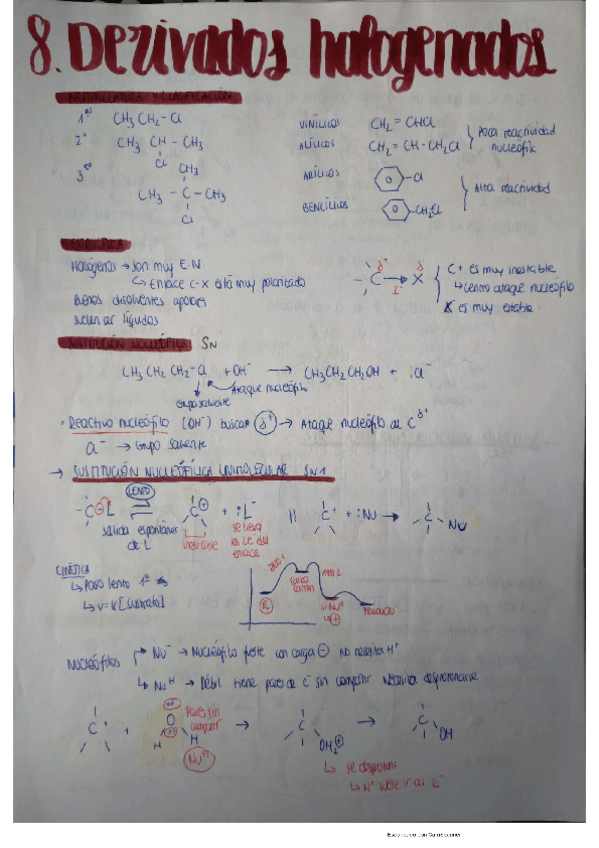 8. Derivados halogenados
NOMENCLATURA Y CLASIFICACIÓN
1º CH3 CH2-Cl
2º CH3 CH-CH3
Cl
3º CH3
CH3-C-CH3
Cl
VINÍLICOS CH2=CHCl
ALÍLICOS CH2=CH-CH2Cl
Poca reactividad
ARÍLICOS -Cl
BENCÍLICOS CH2Cl
Alta reactividad
Halógenos → son muy E.N.
↳ Enlace C-X está muy polarizado
Buenos disolventes apolares
Suelen ser líquidos
C → X
δ+ δ-
I-
C+ es muy inestable
↳ centro ataque nucleófilo
X es muy estable
SUSTITUCIÓN NUCLEÓFILA SN
CH3 CH2 CH2-Cl + OH- → CH3CH2CH2OH + :Cl-
Ataque nucleófilo
Grupo saliente
· Reactivo nucleófilo (OH-) buscar δ+ → Ataque nucleófilo al C δ+
Cl- → Grupo saliente
→ SUSTITUCIÓN NUCLEÓFILA UNIMOLECULAR SN1
LENTO
-C-L ⇌ C+ + :L- || C+ + :Nu → C-Nu
salida espontánea
de L-
inestable
se lleva
los 2e- del
enlace
CINÉTICA
↳ Paso lento 1º
↳ V=K[sustrato]
R
Producto
NUCLEÓFILOS
Nu- → Nucleófilo fuerte con carga ⊖ no necesita H+
↳ NuH → Débil tiene pares de e- sin compartir Necesita desprotonarse
C+ + H O H → C OH2+ → C OH
Pares sin
compartir
↳ se desprotona
Escaneado con CamScanner